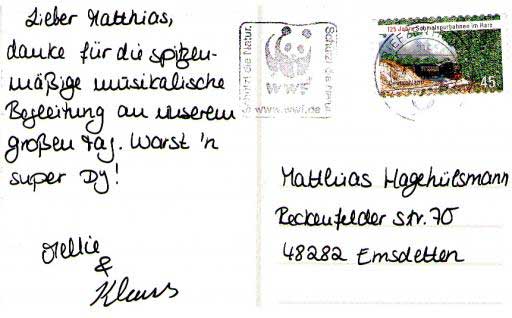 Lieber Matthias,
danke für die spitzen-
mäßige musikalische
Begleitung an unserem
großen Tag. Warst 'n
super DJ!
Nellie
&
Klaus
Schützt die Natur
WWF
www.wwf.de
Schützt die Natur
125 Jahre Schmalspurbahnen im Harz
45
Matthias Hagehülsmann
Reckenfelder Str. 70
48282 Emsdetten